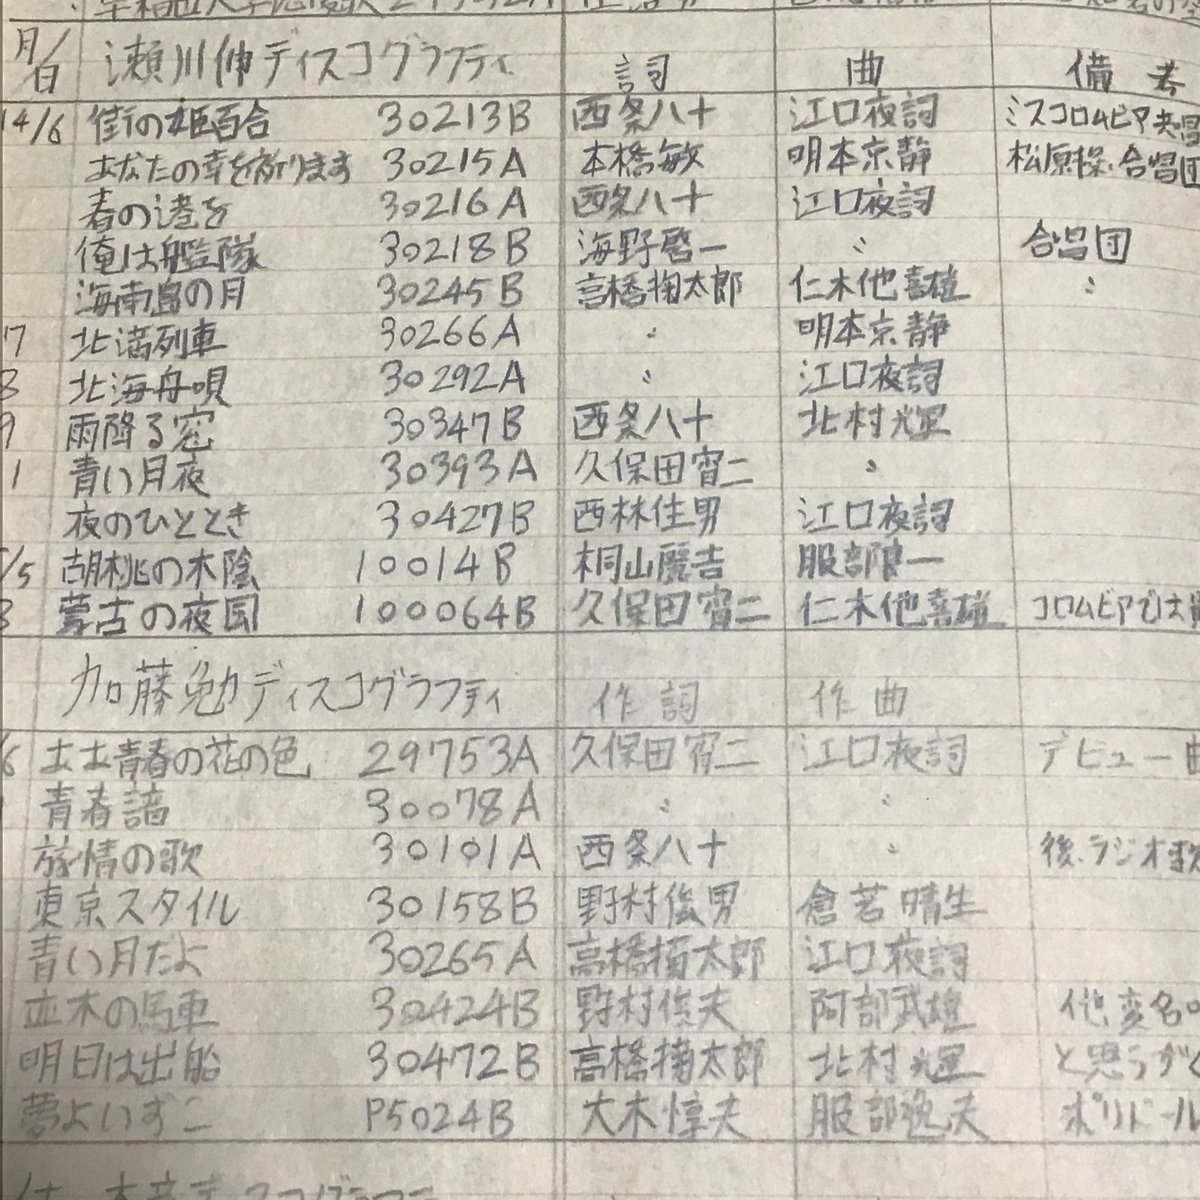 月/日 瀬川伸ディスコグラフティ 詞 曲 備考
14/6 街の姫百合 30213B 西条八十 江口夜詞 ミスコロムビア共唱
あなたの幸を祈ります 30215A 本橋敏 明本京静 松原操、合唱団
春の港を 30216A 西条八十 江口夜詞
俺は艦隊 30218B 海野啓一 〃 合唱団
海南島の月 30245B 高橋掬太郎 仁木他喜雄 〃
7 北満列車 30266A 〃 明本京静
8 北海舟唄 30292A 〃 江口夜詞
9 雨降る窓 30347B 西条八十 北村輝
1 青い月夜 30393A 久保田宵二 〃
夜のひととき 30427B 西林住男 江口夜詞
/5 胡桃の木陰 10014B 桐山麗吉 服部良一
8 蒙古の夜風 100064B 久保田宵二 仁木他喜雄 コロムビアでは
加藤勉ディスコグラフティ 作詞 作曲
6 ああ青春の花の色 29753A 久保田宵二 江口夜詞 デビュー曲
青春譜 30078A 〃 〃
旅情の歌 30101A 西条八十 〃 後、ラジオ歌
東京スタイル 30158B 野村俊男 倉若晴生
青い月だよ 30265A 高橋掬太郎 江口夜詞
並木の馬車 30424B 野村俊夫 阿部武雄 他、変名
明日は出船 30472B 高橋掬太郎 北村輝 と思うが
夢よいずこ P5024B 大木惇夫 服部逸夫 ポリドール